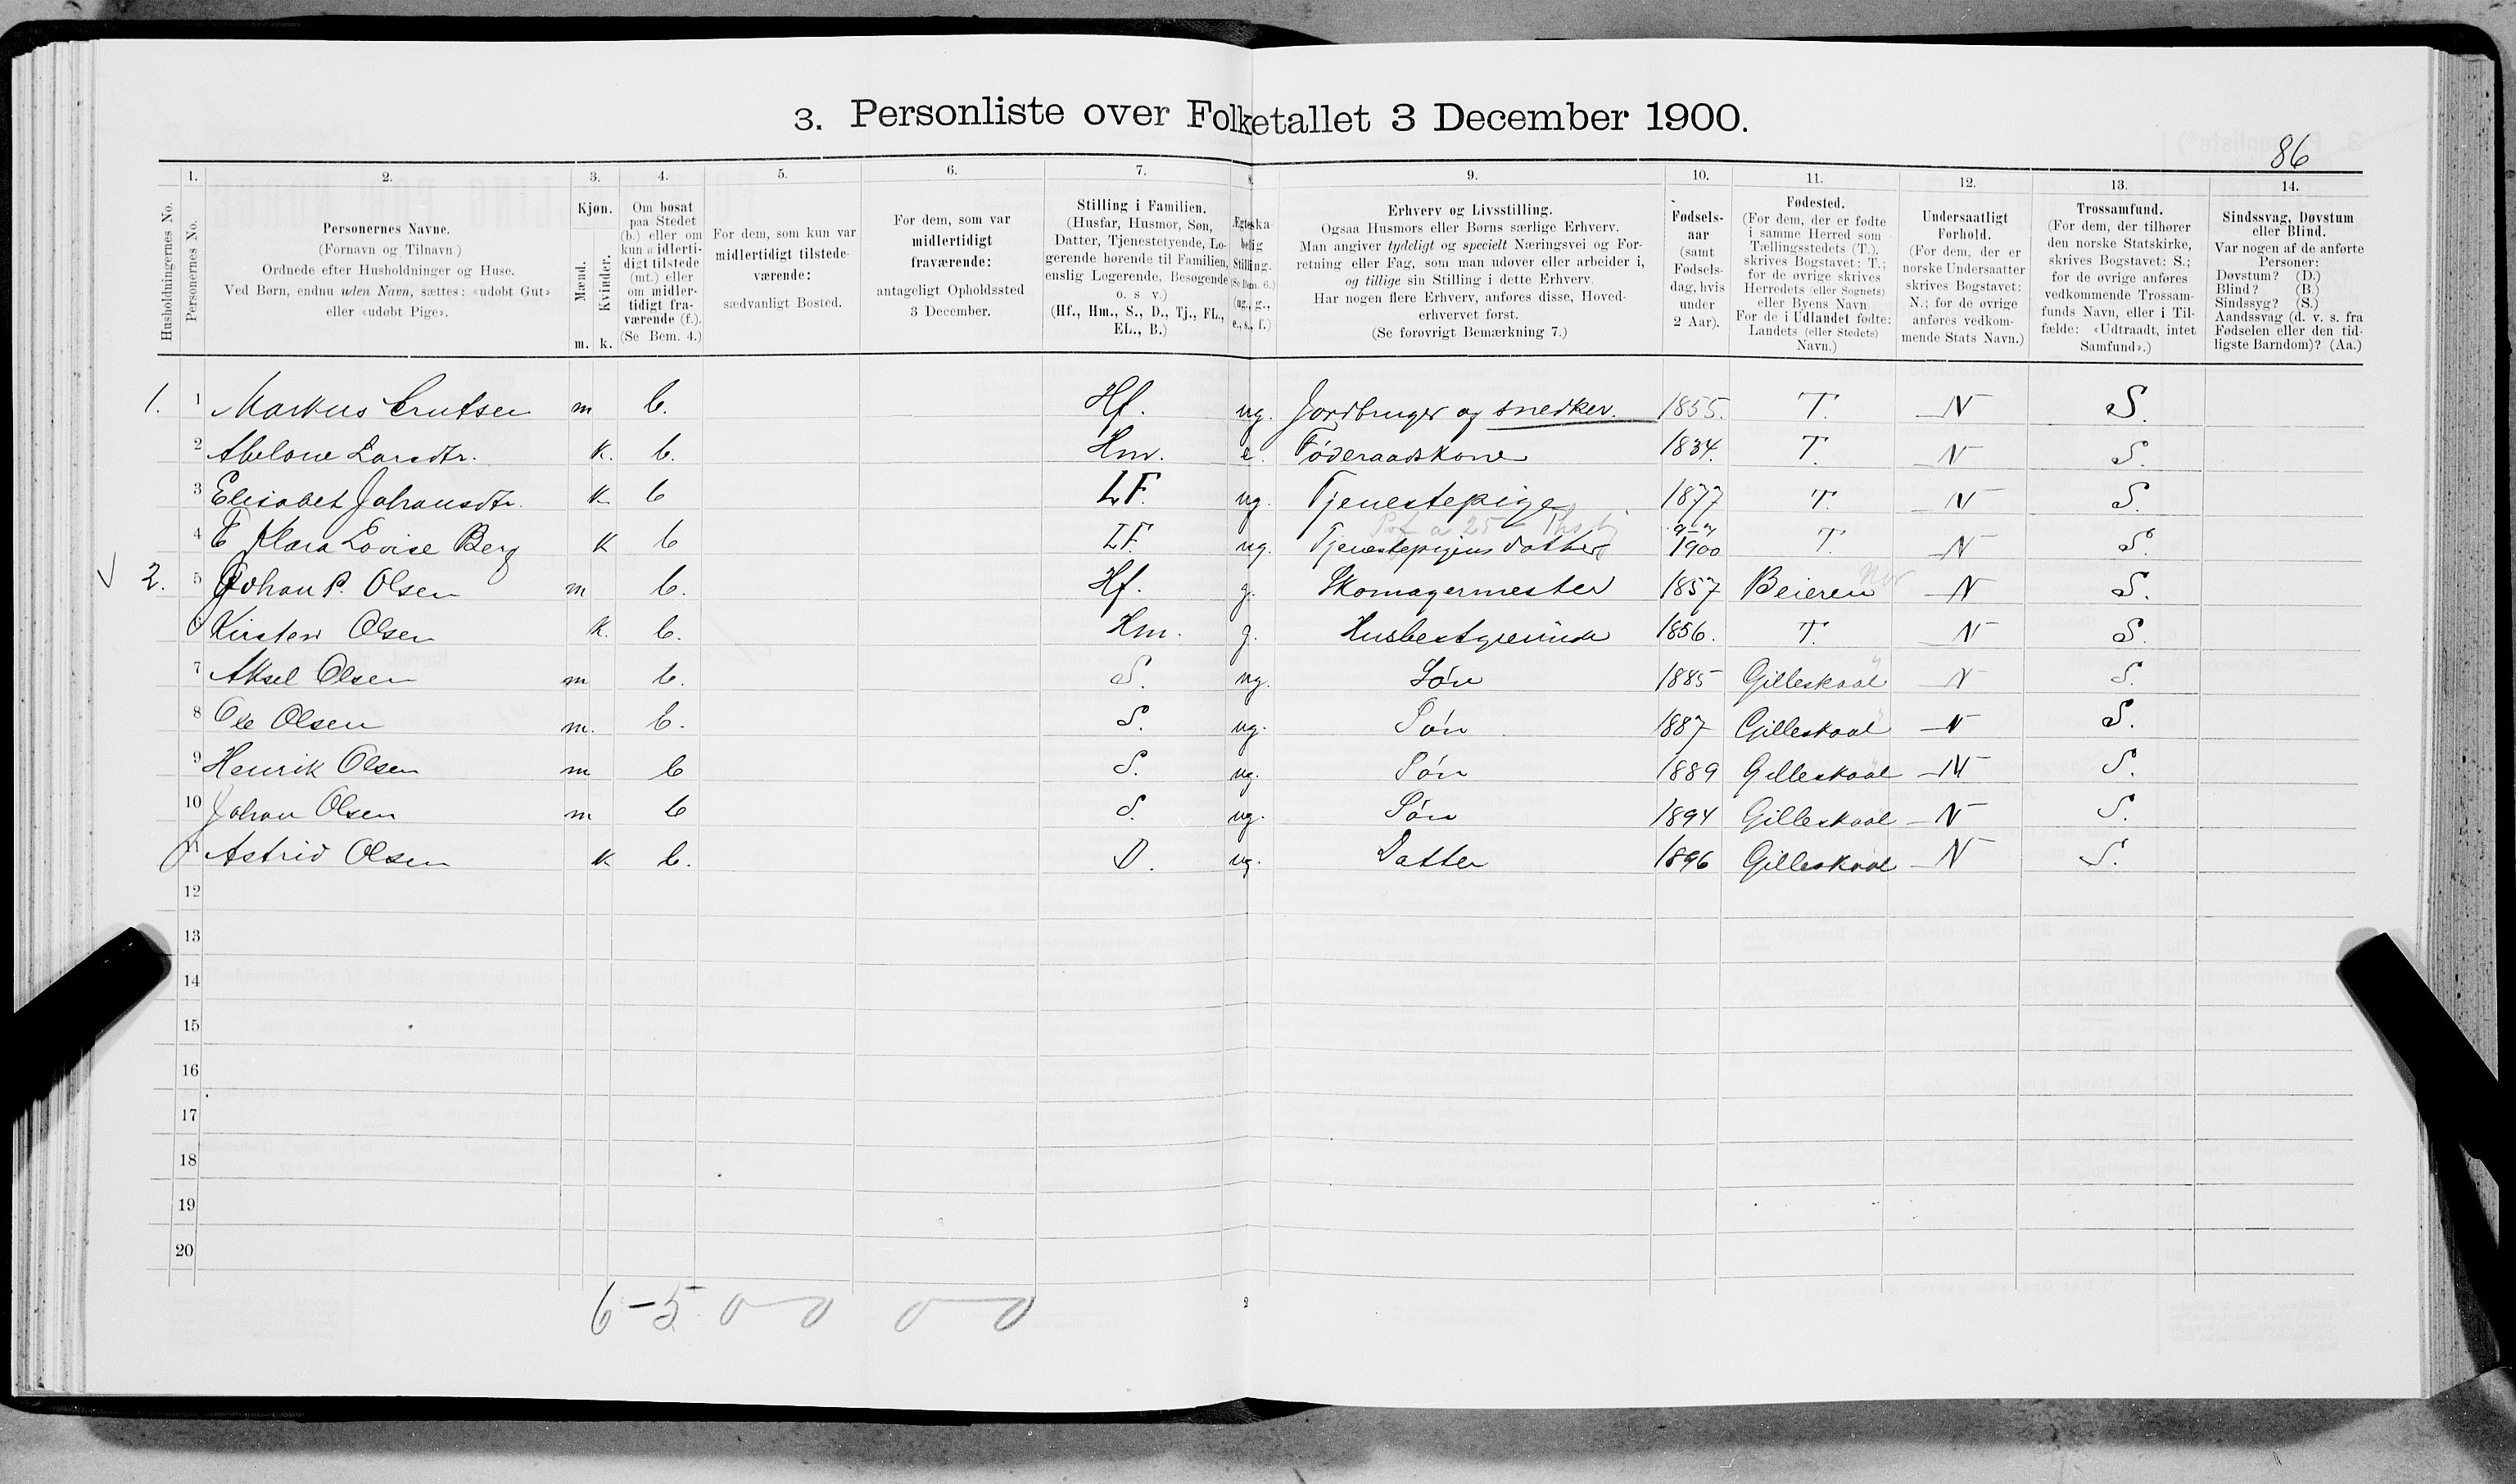 3. Personliste over Folketallet 3 December 1900.
86
1. 2. 3. 4. 5. 6. 7. 8. 9. 10. 11. 12. 13. 14.
Husholdningernes No.
Personernes No.
Personernes Navne.
(Fornavn og Tilnavn)
Ordnede efter Husholdninger og Huse.
Ved Børn, endnu uden Navn, sættes: «udøbt Gut»
eller «udøbt Pige».
Kjøn.
Mænd.
Kvinder.
m. k.
Om bosat
paa Stedet
(b.) eller om
kun midlerti-
digt tilstede
(mt.) eller
om midler-
tidigt fra-
værende (f.).
(Se Bem. 4.)
For dem, som kun var
midlertidigt tilstede-
værende:
sædvanligt Bosted.
For dem, som var
midlertidigt
fraværende:
antageligt Opholdssted
3 December.
Stilling i Familien.
(Husfar, Husmor, Søn,
Datter, Tjenestetyende, Lo-
gerende hørende til Familien,
enslig Logerende, Besøgende
o. s v.)
(Hf., Hm., S., D., Tj., FL.,
EL., B.)
Ægteska-
belig
Stilling.
(Se Bem. 6.)
(ug., g.,
e., s., f.)
Erhverv og Livsstilling.
Ogsaa Husmors eller Børns særlige Erhverv.
Man angiver tydeligt og specielt Næringsvei og For-
retning eller Fag, som man udøver eller arbeider i,
og tillige sin Stilling i dette Erhverv.
Har nogen flere Erhverv, anføres disse, Hoved-
erhvervet først.
(Se forøvrigt Bemærkning 7.)
Fødsels-
aar
(samt
Fødsels-
dag, hvis
under
2 Aar).
Fødested.
(For dem, der er fødte
i samme Herred som
Tællingsstedets (T.),
skrives Bogstavet: T.;
for de øvrige skrives
Herredets (eller Sognets)
eller Byens Navn
For de i Udlandet fødte:
Landets (eller Stedets)
Navn.)
Undersaatligt
Forhold.
(For dem, der er
norske Undersaatter
skrives Bogstavet:
N.; for de øvrige
anføres vedkom-
mende Stats Navn.)
Trossamfund.
(For dem, der tilhører
den norske Statskirke,
skrives Bogstavet: S.;
for de øvrige anføres
vedkommende Trossam-
funds Navn, eller i Til-
fælde: «Udtraadt, intet
Samfund».)
Sindssvag, Døvstum
eller Blind.
Var nogen af de anførte
Personer:
Døvstum? (D.)
Blind? (B.)
Sindssyg? (S.)
Aandssvag (d. v. s. fra
Fødselen eller den tid-
ligste Barndom)? (Aa.)
1. 1 Markus Crutsen m b. Hf. ug. Jordbruger og snedker. 1855. T. N S.
2 Abelone Larsdtr. k. b. Hm. e. Føderaadskone 1834. T. N S.
3 Elisabet Johansdtr. k b LF. ug. Tjenestepige 1877 T. N S.
4 E Klara Lovise Berg k b LF. ug. Tjenestepigens datter 1900 T. N S.
2. 5 Johan P. Olsen m b. Hf. g. Skomagermester 1857 Beieren N S.
6 Kirsten Olsen k. b. Hm. g. Husbestyrerinde 1856. T. N S.
7 Aksel Olsen m b. S. ug. Søn 1885 Gilleskaal N S.
8 Ole Olsen m. b. S. ug. Søn 1887 Gilleskaal N S.
9 Henrik Olsen m b S. ug. Søn 1889 Gilleskaal N S.
10 Johan Olsen m b S. ug. Søn 1894 Gilleskaal N S.
11 Astrid Olsen k b. D. ug. Datter 1896 Gilleskaal N S.
12
13
14
15
16
17
18
19
20
6-5 0-0 0-0
2